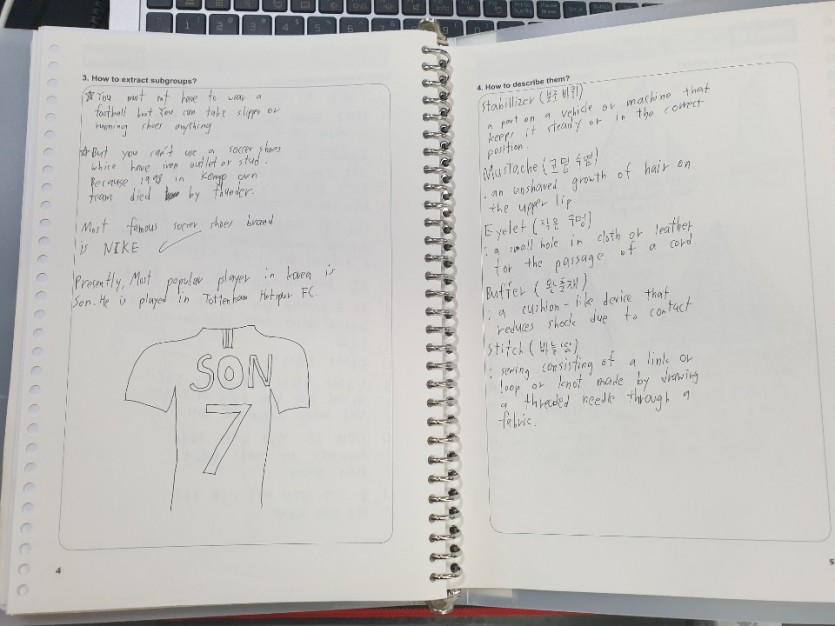 3. How to extract subgroups?
☆ You must not have to wear a
football but You can take slipper or
running shoes anything
☆ But you can't use a soccer shoes
which have iron outlet or stud.
Because 1998 in Kongo own
team died by thunder.
Most famous soccer shoes brand
is NIKE
Presently, Most popular player in korea is
Son. He is played in Tottenham Hotspur FC.
SON
7
4
4. How to describe them?
Stabillizer (보조 바퀴)
a part on a vehicle or machine that
keeps it steady or in the correct
position.
Mustache (콧털 수염)
: an unshaved growth of hair on
the upper lip.
Eyelet (작은 구멍)
: a small hole in cloth or leather
for the passage of a cord
Buffer (완충재)
: a cushion-like device that
reduces shock due to contact
Stitch (바늘 땀)
: sewing consisting of a link or
loop or knot made by drawing
a threaded needle through a
fabric.
5